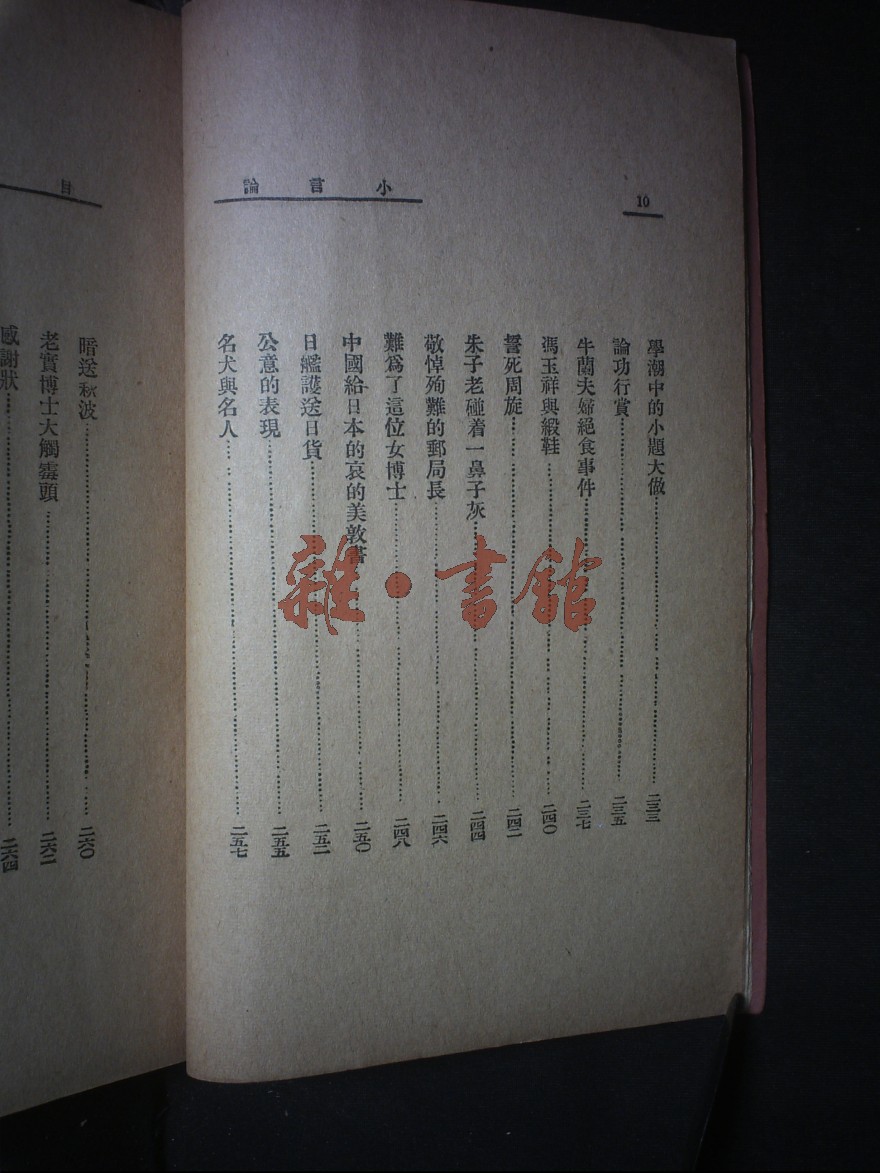 小言論
10
學潮中的小題大做……二三三
論功行賞……二三五
牛蘭夫婦絕食事件……二三七
馮玉祥與緞鞋……二四〇
誓死周旋……二四二
朱子老碰着一鼻子灰……二四四
敬悼殉難的郵局長……二四六
難爲了這位女博士……二四八
中國給日本的哀的美敦書……二五〇
日艦護送日貨……二五二
公意的表現……二五五
名犬與名人……二五七
目
暗送秋波……二六〇
老實博士大觸霉頭……二六二
感謝狀……二六四
雜·書館